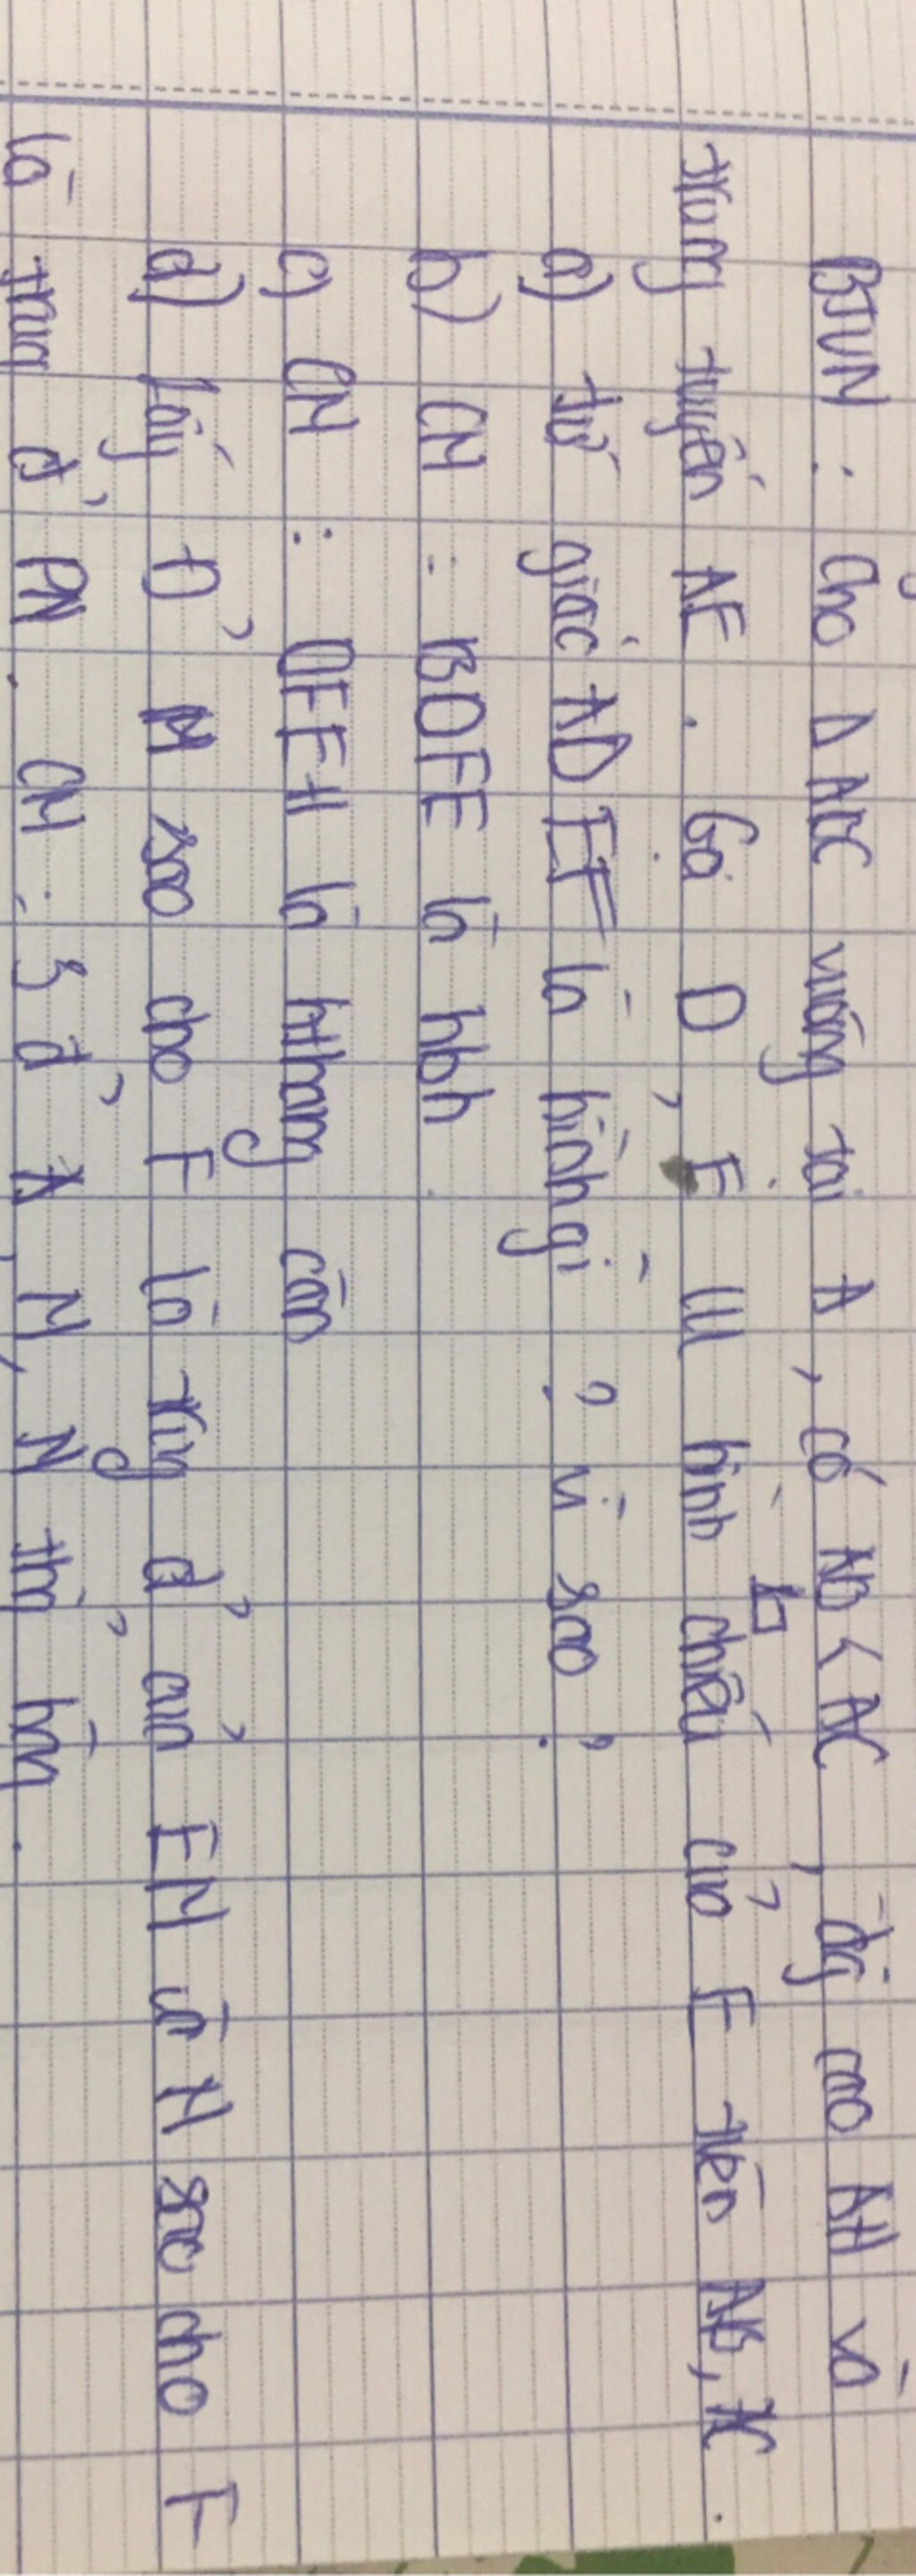 BTVN : Cho Δ ABC vuông tại A, có AB < AC, đg cao AH và
trung tuyến AE. Gọi D, F lll hình chiếu ⊥ của E trên AB, AC.
a) tứ giác ADEF là hình gì ? vì sao ?
b) CM : BDFE là hbh
c) CM : DFEH là hthang cân
d) lấy đ' M sao cho F là trug đ' của EM và N sao cho F
là trug đ' BN. CM : 3 đ' A, M, N thẳ hàng.